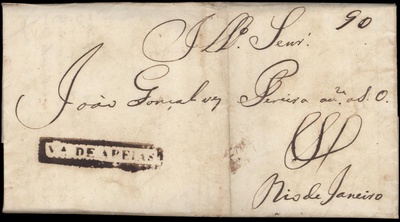 90
Illº. Senr.
João Gonçalvez Pereira
V.A DE AREIAS
Rio de Janeiro